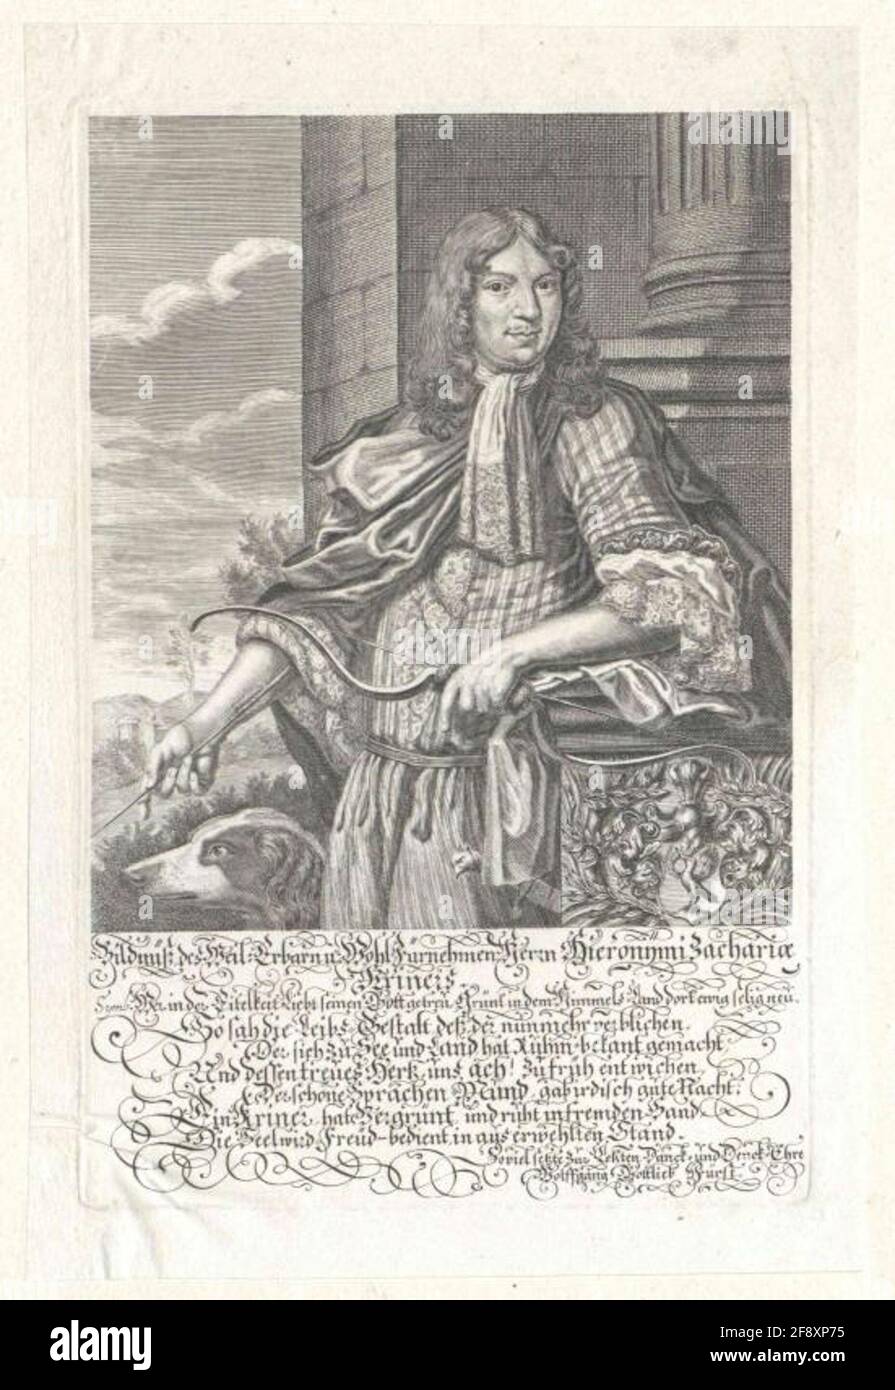 Bildnüß des Weil. Erbarn u. Wohl Fürnehmen Herrn Hieronÿmi Zachariæ
Krineis
Wer in der Eitelkeit Liebt seinen Gott getreu, Grünt in dem Himmels-Land dort ewig selig neu.
So sah die Leibs-Gestalt deß, der nunmehr verblichen.
Der sich zu See und Land hat Ruhm-bekant gemacht
Und dessen treues Hertz uns ach! zu früh entwichen
der schöne Sprachen Mund gab irdisch gute Nacht.
Ein Kriner hate Vergrünt und ruht in fremden Sand
Die Seel wird Freud-bedient in aus erwehlten Stand.
So viel setzte zur Letzten Danck- und Denck-Ehre
Wolffgang Gottlieb Fürst
alamy
Image ID: 2F8XP75
www.alamy.com